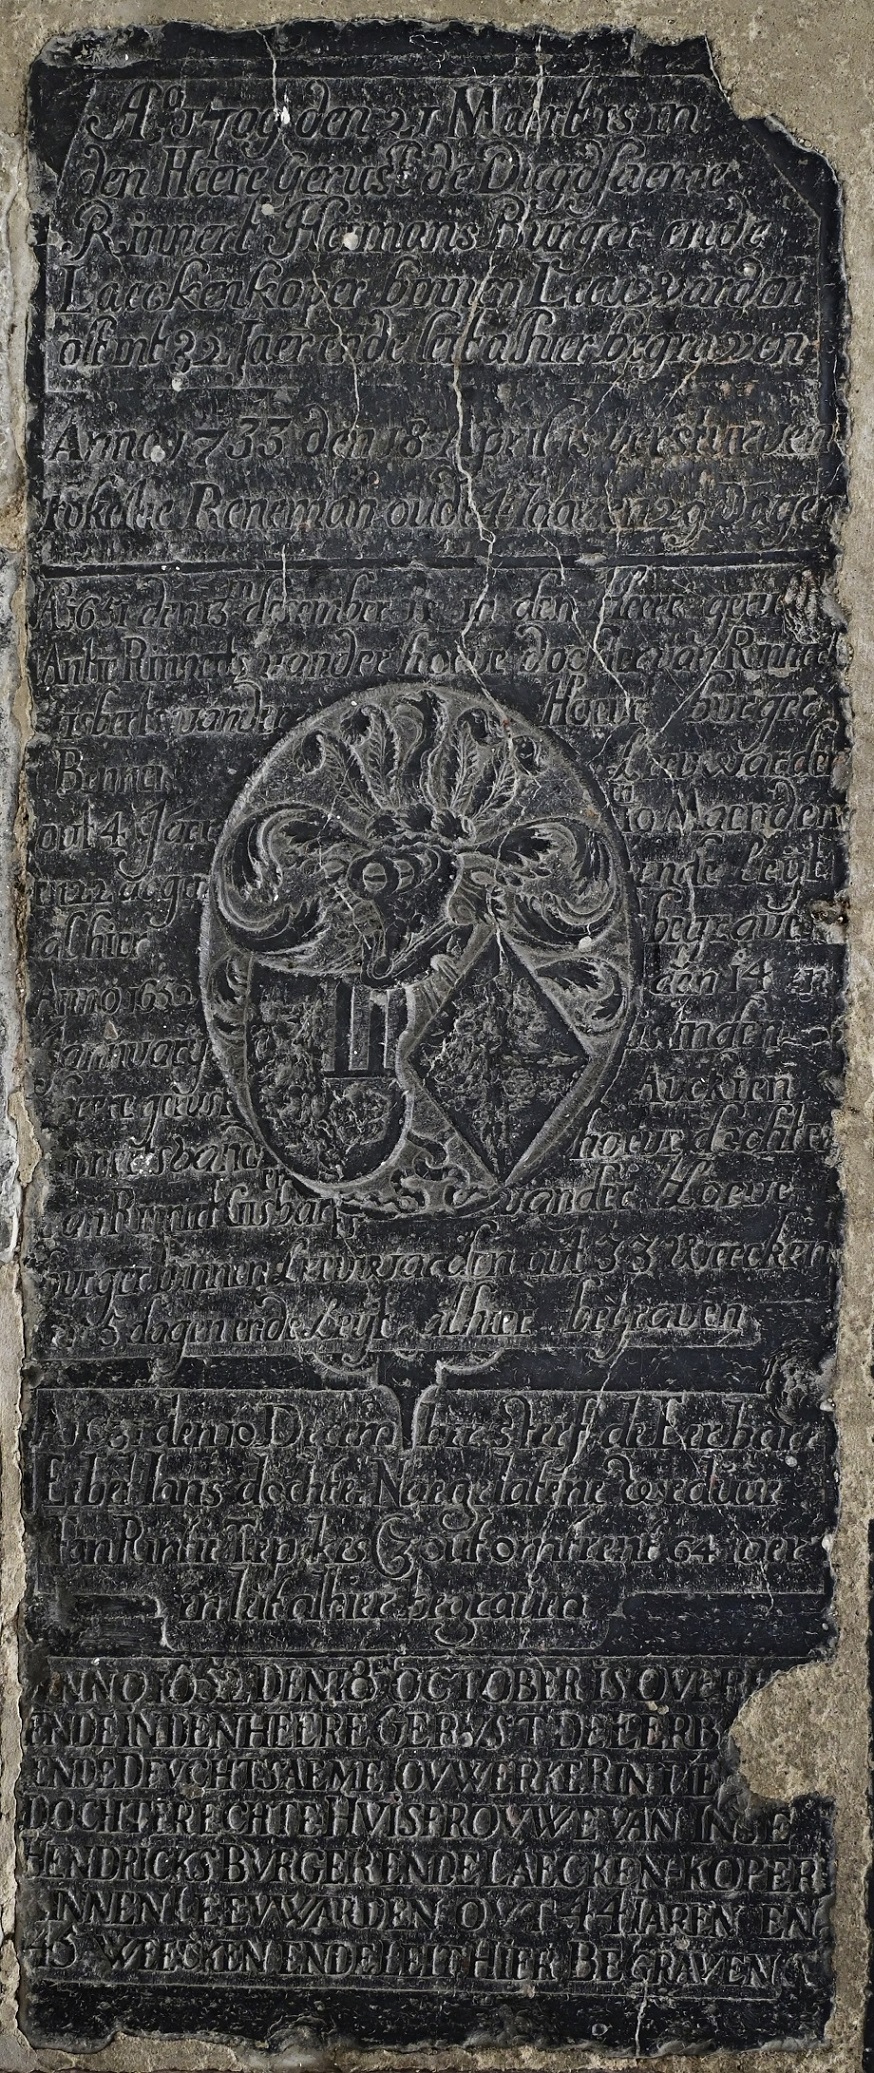 Aº 1709 den 21 Maert is in
den Heere gerust de Dugdsaeme
Rinnert Heimans Burger ende
Laeckenkoper binnen Leeuwarden
olt int 32 Jaer ende leit alhier begraven
Anno 1733 den 18 April is versturven
fokeltie Reneman oudt 4 Jaar en 29 Dagen
Aº 1651 den 13 desember is in den Heere
Antie Rinnerts vander hoeve dochter van Rinnert
isberts vander Hoeve burger
Bennen Leeuwarden
out 4 Jaer 10 Maenden
en 22 dage ende leyt
alhier begraven
Anno 1652 den 14 en
Jannvary is in den
heere gerust Auckien
innerts vand hoeve dochter
van Rinnert Gisbarts vander Hoeve
burger binnen Leeuwaerden out 33 Weecken
en 5 dagen ende Leyt alhier begraven
den 10 December sterf de Eerbare
Eebel Ians dochter Naegelatene weduue
fan Rintie Teepckes out omtrent 64 iaer
en leit alhier begraven
ANNO 1652 DEN 18 OCTOBER IS
ENDE IN DEN HEERE GERVST DE EERB
ENDE DEVCHTSAEME IOVWERKE RINTIE
DOCHTER ECHTE HVISFROVWE VAN
HENDRICKS BVRGER ENDE LAECKEN-KOPER
INNEN LEEVWARDEN OVT 44 IAREN EN
45 WEECKEN ENDE LEIT HIER BEGRAVEN